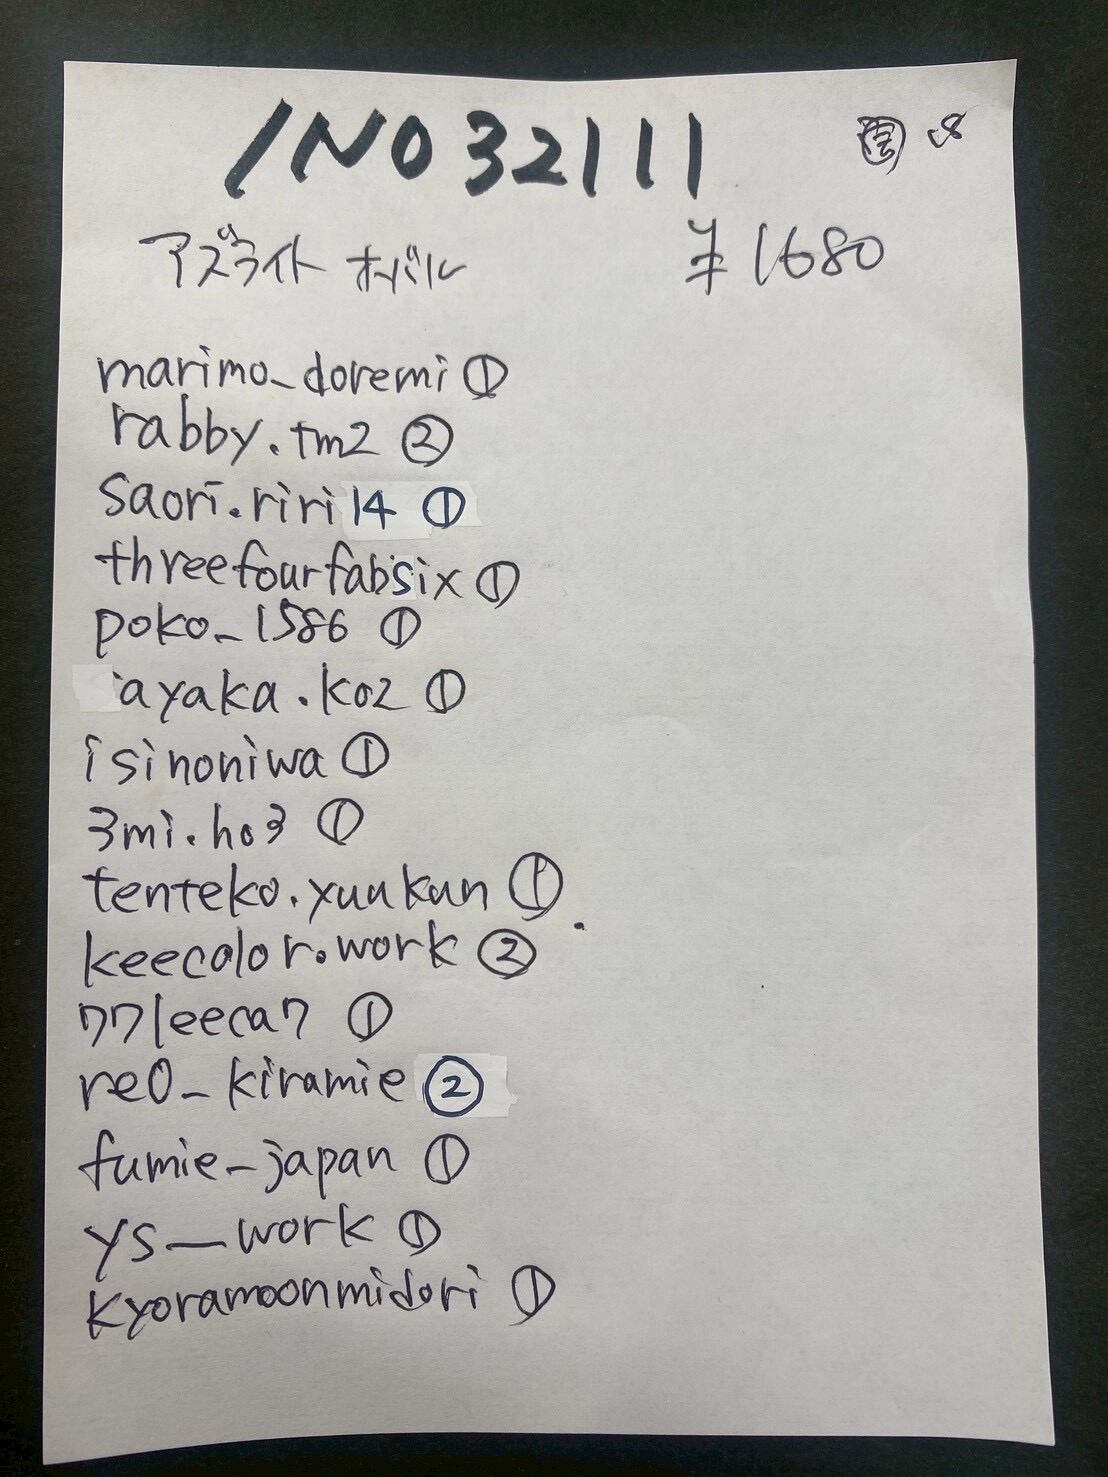 INO32111
アズライト オーバル ¥1680
marimo_doremi ①
rabby.tm2 ②
saori.riri14 ①
threefourfabsix ①
poko_1586 ①
ayaka.ko2 ①
isinoniwa ①
3mi.ho3 ①
tenteko.yuukun ①
keecolor.work ②
77leeca7 ①
re0_kiramie ②
fumie_japan ①
ys__work ①
kyoramoonmidori ①